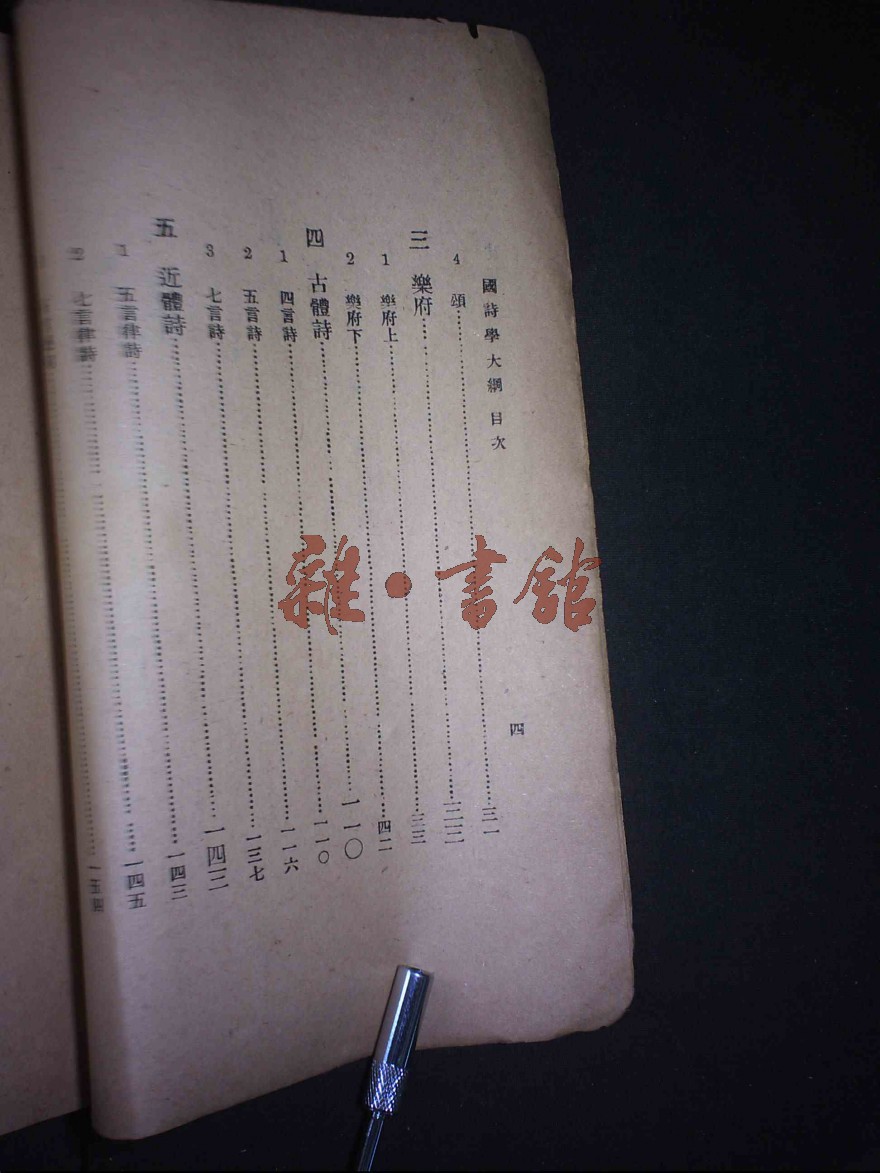 國詩學大綱 目次
四
4 頌……三一
三 樂府……三三
1 樂府上……三三
2 樂府下……四二
四 古體詩……一一〇
1 四言詩……一一〇
2 五言詩……一一六
3 七言詩……一三七
五 近體詩……一四三
1 五言律詩……一四三
2 七言律詩……一四五
一五四
雜·書館